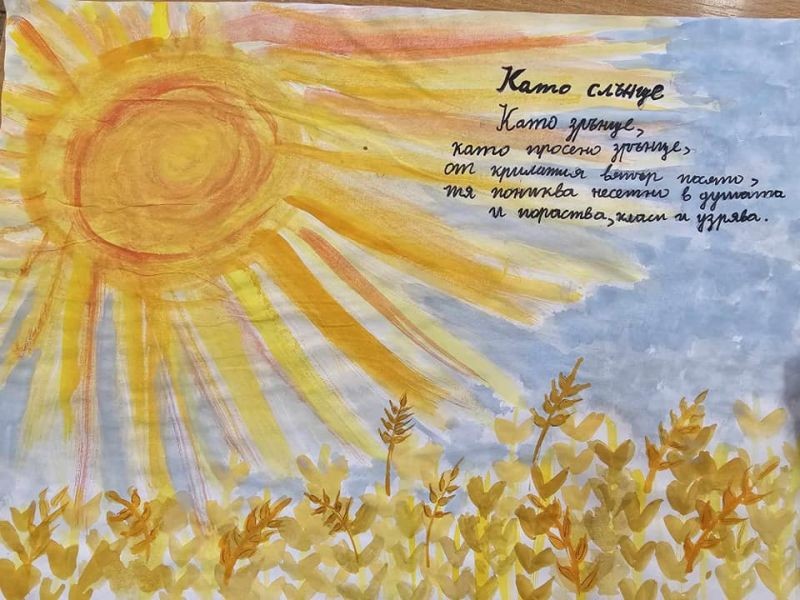 Като слънце
Като зрънце,
като просено зрънце,
от крилатия вятър посято,
тя пониква несетно в душата
и пораства, класи и узрява.